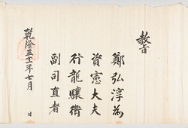 教旨
鄭弘淳為
資憲大夫
行龍驤衛
副司直者
乾隆五十一年七月 日